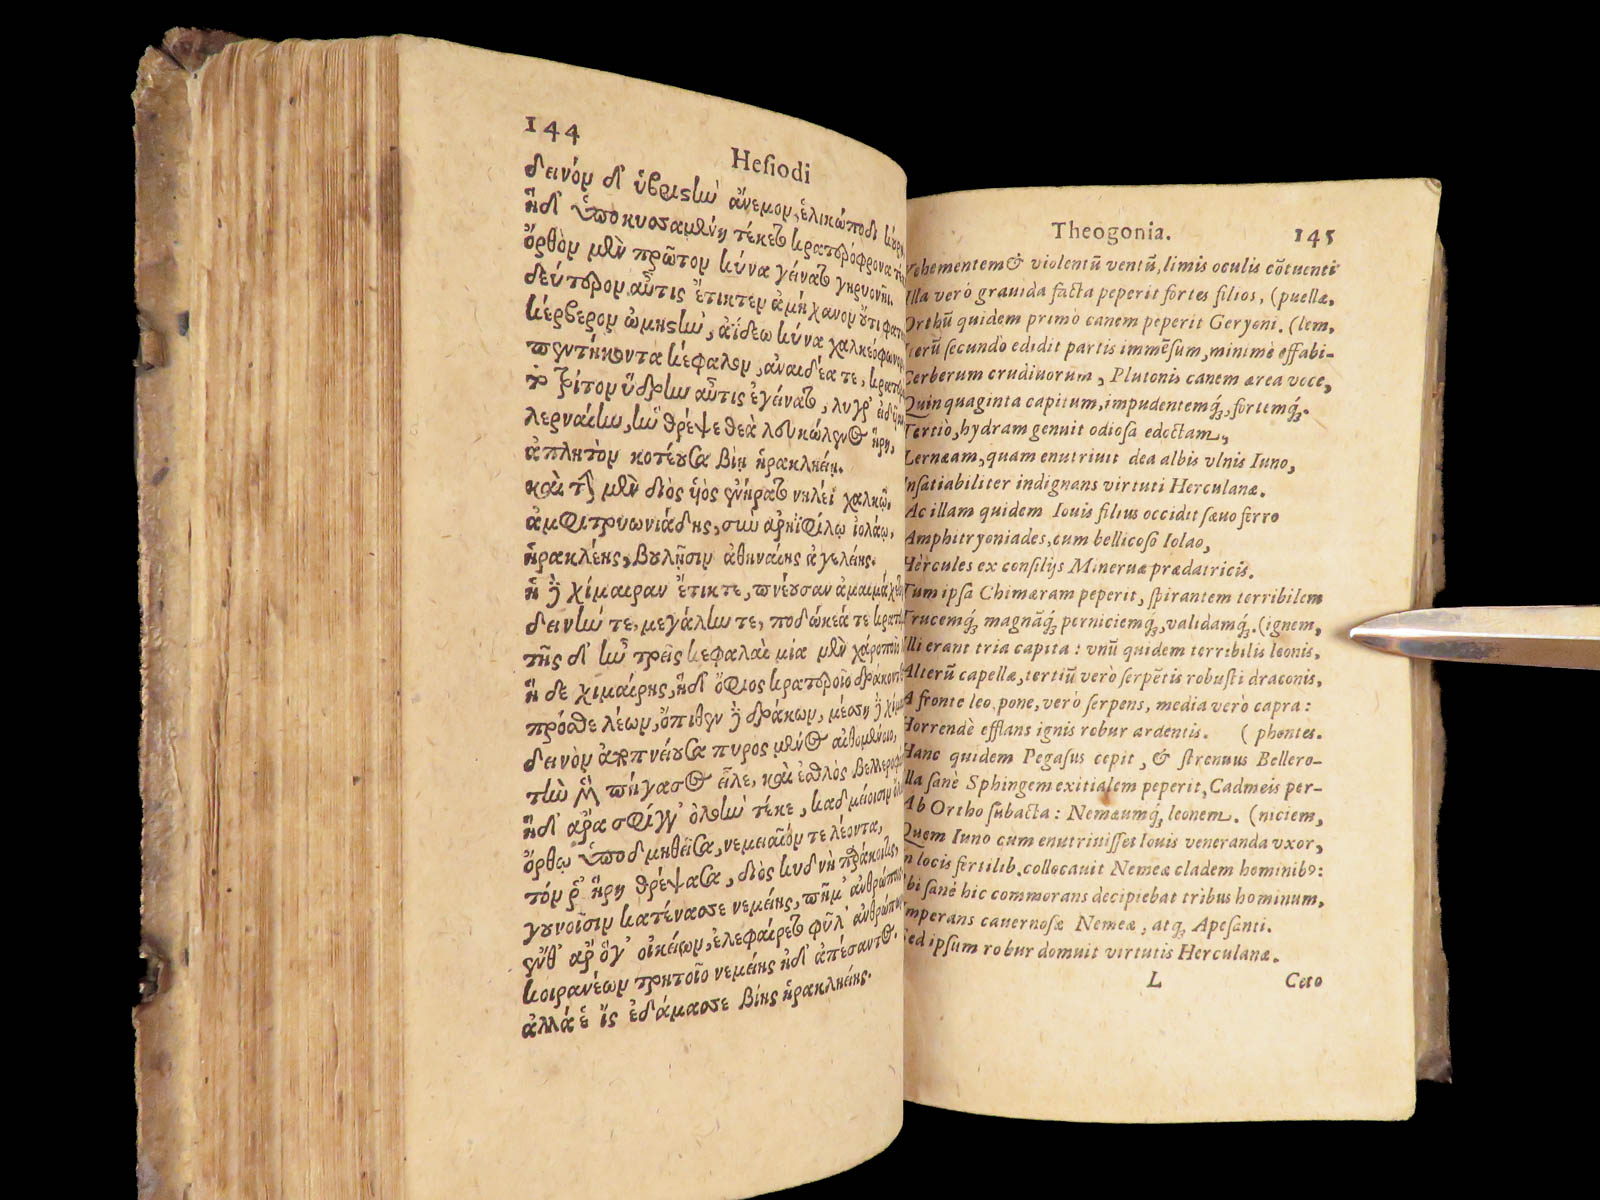 144
Hesiodi
δεινόν δ' ὑβριστὴν ἄνεμον, ἑλικώπιδι κούρῃ
ἣ δ' ὑποκυσαμένη τέκετο κρατερόφρονα
ὄρθον μὲν πρῶτον κύνα γείνατο γηρυονῆι.
δεύτερον αὖτις ἔτικτεν ἀμήχανον οὔτι
κέρβερον ὠμηστὴν, ἀΐδεω κύνα χαλκεόφωνον
πεντήκοντα κέφαλον, ἀναιδέα τε,
τὸ τρίτον ὕδρην αὖτις ἐγείνατο, λυγρ'
λερναίην, ἣν θρέψε θεὰ λευκώλενος ἥρη,
ἀπλητὸν κοτέουσα βίῃ ἡρακληείῃ.
καὶ τὴν μὲν διὸς υἱὸς ἐνήρατο νηλέϊ χαλκῷ,
ἀμφιτρυωνιάδης, σὺν ἀρηϊφίλῳ ἰολάῳ,
ἡρακλέης, βουλῇσιν ἀθηναίης ἀγελείης.
ἣ δὲ χίμαιραν ἔτικτε, πνέουσαν ἀμαιμάκετον
δεινήν τε, μεγάλην τε, ποδώκεά τε
τῆς δ' ἦν τρεῖς κεφαλαὶ μία μὲν χάροποῖο
ἣ δὲ χιμαίρης, ἣ δ' ὄφιος κρατεροῖο δράκοντος
πρόσθε λέων, ὄπιθεν δὲ δράκων, μέσση δὲ
δεινὸν ἀποπνείουσα πυρος μένος αἰθομένοιο,
τὴν μὲν πήγασος εἷλε, καὶ ἐσθλὸς
ἣ δ' ἄρα σφίγγ' ὀλοὴν τέκε, καδμείοισιν
ὄρθῳ ὑποδμηθεῖσα, νεμειαῖόν τε λέοντα,
τόν ῥ' ἥρη θρέψασα, διὸς κυδνὴ παράκοιτις,
γουνοῖσιν κατένασσε νεμείης, πῆμ' ἀνθρώποις
ἔνθ' ἄρ' ὅγ' οἰκείων, ἐλεφαίρετο φῦλ' ἀνθρώπων
κοιρανέων τρητοῖο νεμείης ἠδ' ἀπέσαντος.
ἀλλά ἑ ἲς ἐδάμασσε βίης ἡρακληείης.
Theogonia. 145
Vehementem & violentū ventū, limis oculis cōtuenti
Illa verò grauida facta peperit fortes filios, (puellæ.
Orthū quidem primò canem peperit Geryoni. (lem,
Iterū secundò edidit partis immēsum, minimè effabi-
Cerberum crudiuorum, Plutonis canem ærea voce,
Quinquaginta capitum, impudentemq́;, fortemq́;.
Tertiò, hydram genuit odiosa edoctam,
Lernæam, quam enutriuit dea albis vlnis Iuno,
Insatiabiliter indignans virtuti Herculanæ.
Ac illam quidem Iouis filius occidit sæuo ferro
Amphitryoniades, cum bellicoso Iolao,
Hercules ex consilijs Mineruæ prædatricis.
Tum ipsa Chimæram peperit, spirantem terribilem
Trucemq́;, magnāq́; perniciemq́;, validamq́;. (ignem,
Illi erant tria capita: vnū quidem terribilis leonis,
Alterū capellæ, tertiū verò serpētis robusti draconis,
A fronte leo, pone, verò serpens, media verò capra:
Horrendè efflans ignis robur ardentis. (phontes.
Hanc quidem Pegasus cepit, & strenuus Bellero-
Illa sanè Sphingem exitialem peperit, Cadmeis per-
Ab Ortho subacta: Nemæumq́; leonem. (niciem,
Quem Iuno cum enutriuisset Iouis veneranda vxor,
In locis fertilib. collocauit Nemeæ cladem hominibꝰ:
Ibi sanè hic commorans decipiebat tribus hominum,
Imperans cauernosæ Nemeæ, atq; Apesanti.
Sed ipsum robur domuit virtutis Herculanæ.
L Ceto